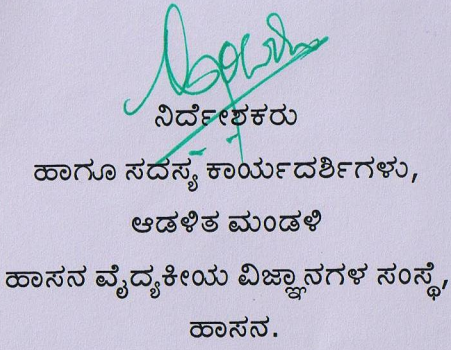 ನಿರ್ದೇಶಕರು
ಹಾಗೂ ಸದಸ್ಯ ಕಾರ್ಯದರ್ಶಿಗಳು,
ಆಡಳಿತ ಮಂಡಳಿ
ಹಾಸನ ವೈದ್ಯಕೀಯ ವಿಜ್ಞಾನಗಳ ಸಂಸ್ಥೆ,
ಹಾಸನ.